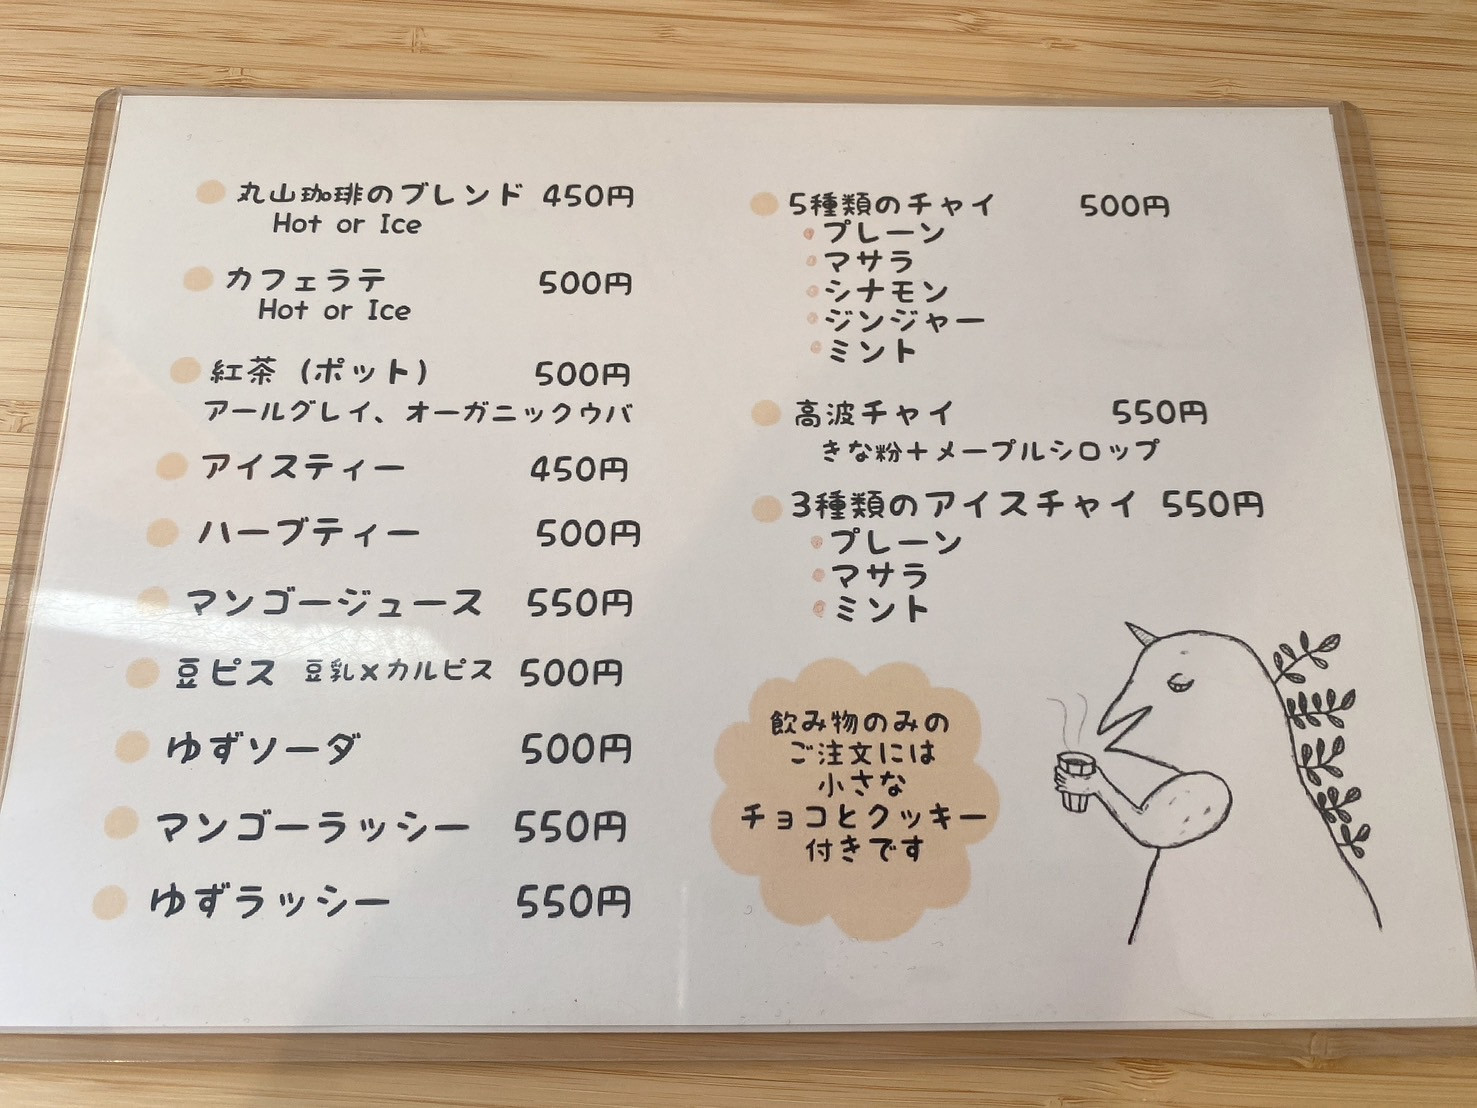 丸山珈琲のブレンド 450円
Hot or Ice
カフェラテ 500円
Hot or Ice
紅茶（ポット） 500円
アールグレイ、オーガニックウバ
アイスティー 450円
ハーブティー 500円
マンゴージュース 550円
豆ピス 豆乳×カルピス 500円
ゆずソーダ 500円
マンゴーラッシー 550円
ゆずラッシー 550円
5種類のチャイ 500円
プレーン
マサラ
シナモン
ジンジャー
ミント
高波チャイ 550円
きな粉＋メープルシロップ
3種類のアイスチャイ 550円
プレーン
マサラ
ミント
飲み物のみの
ご注文には
小さな
チョコとクッキー
付きです